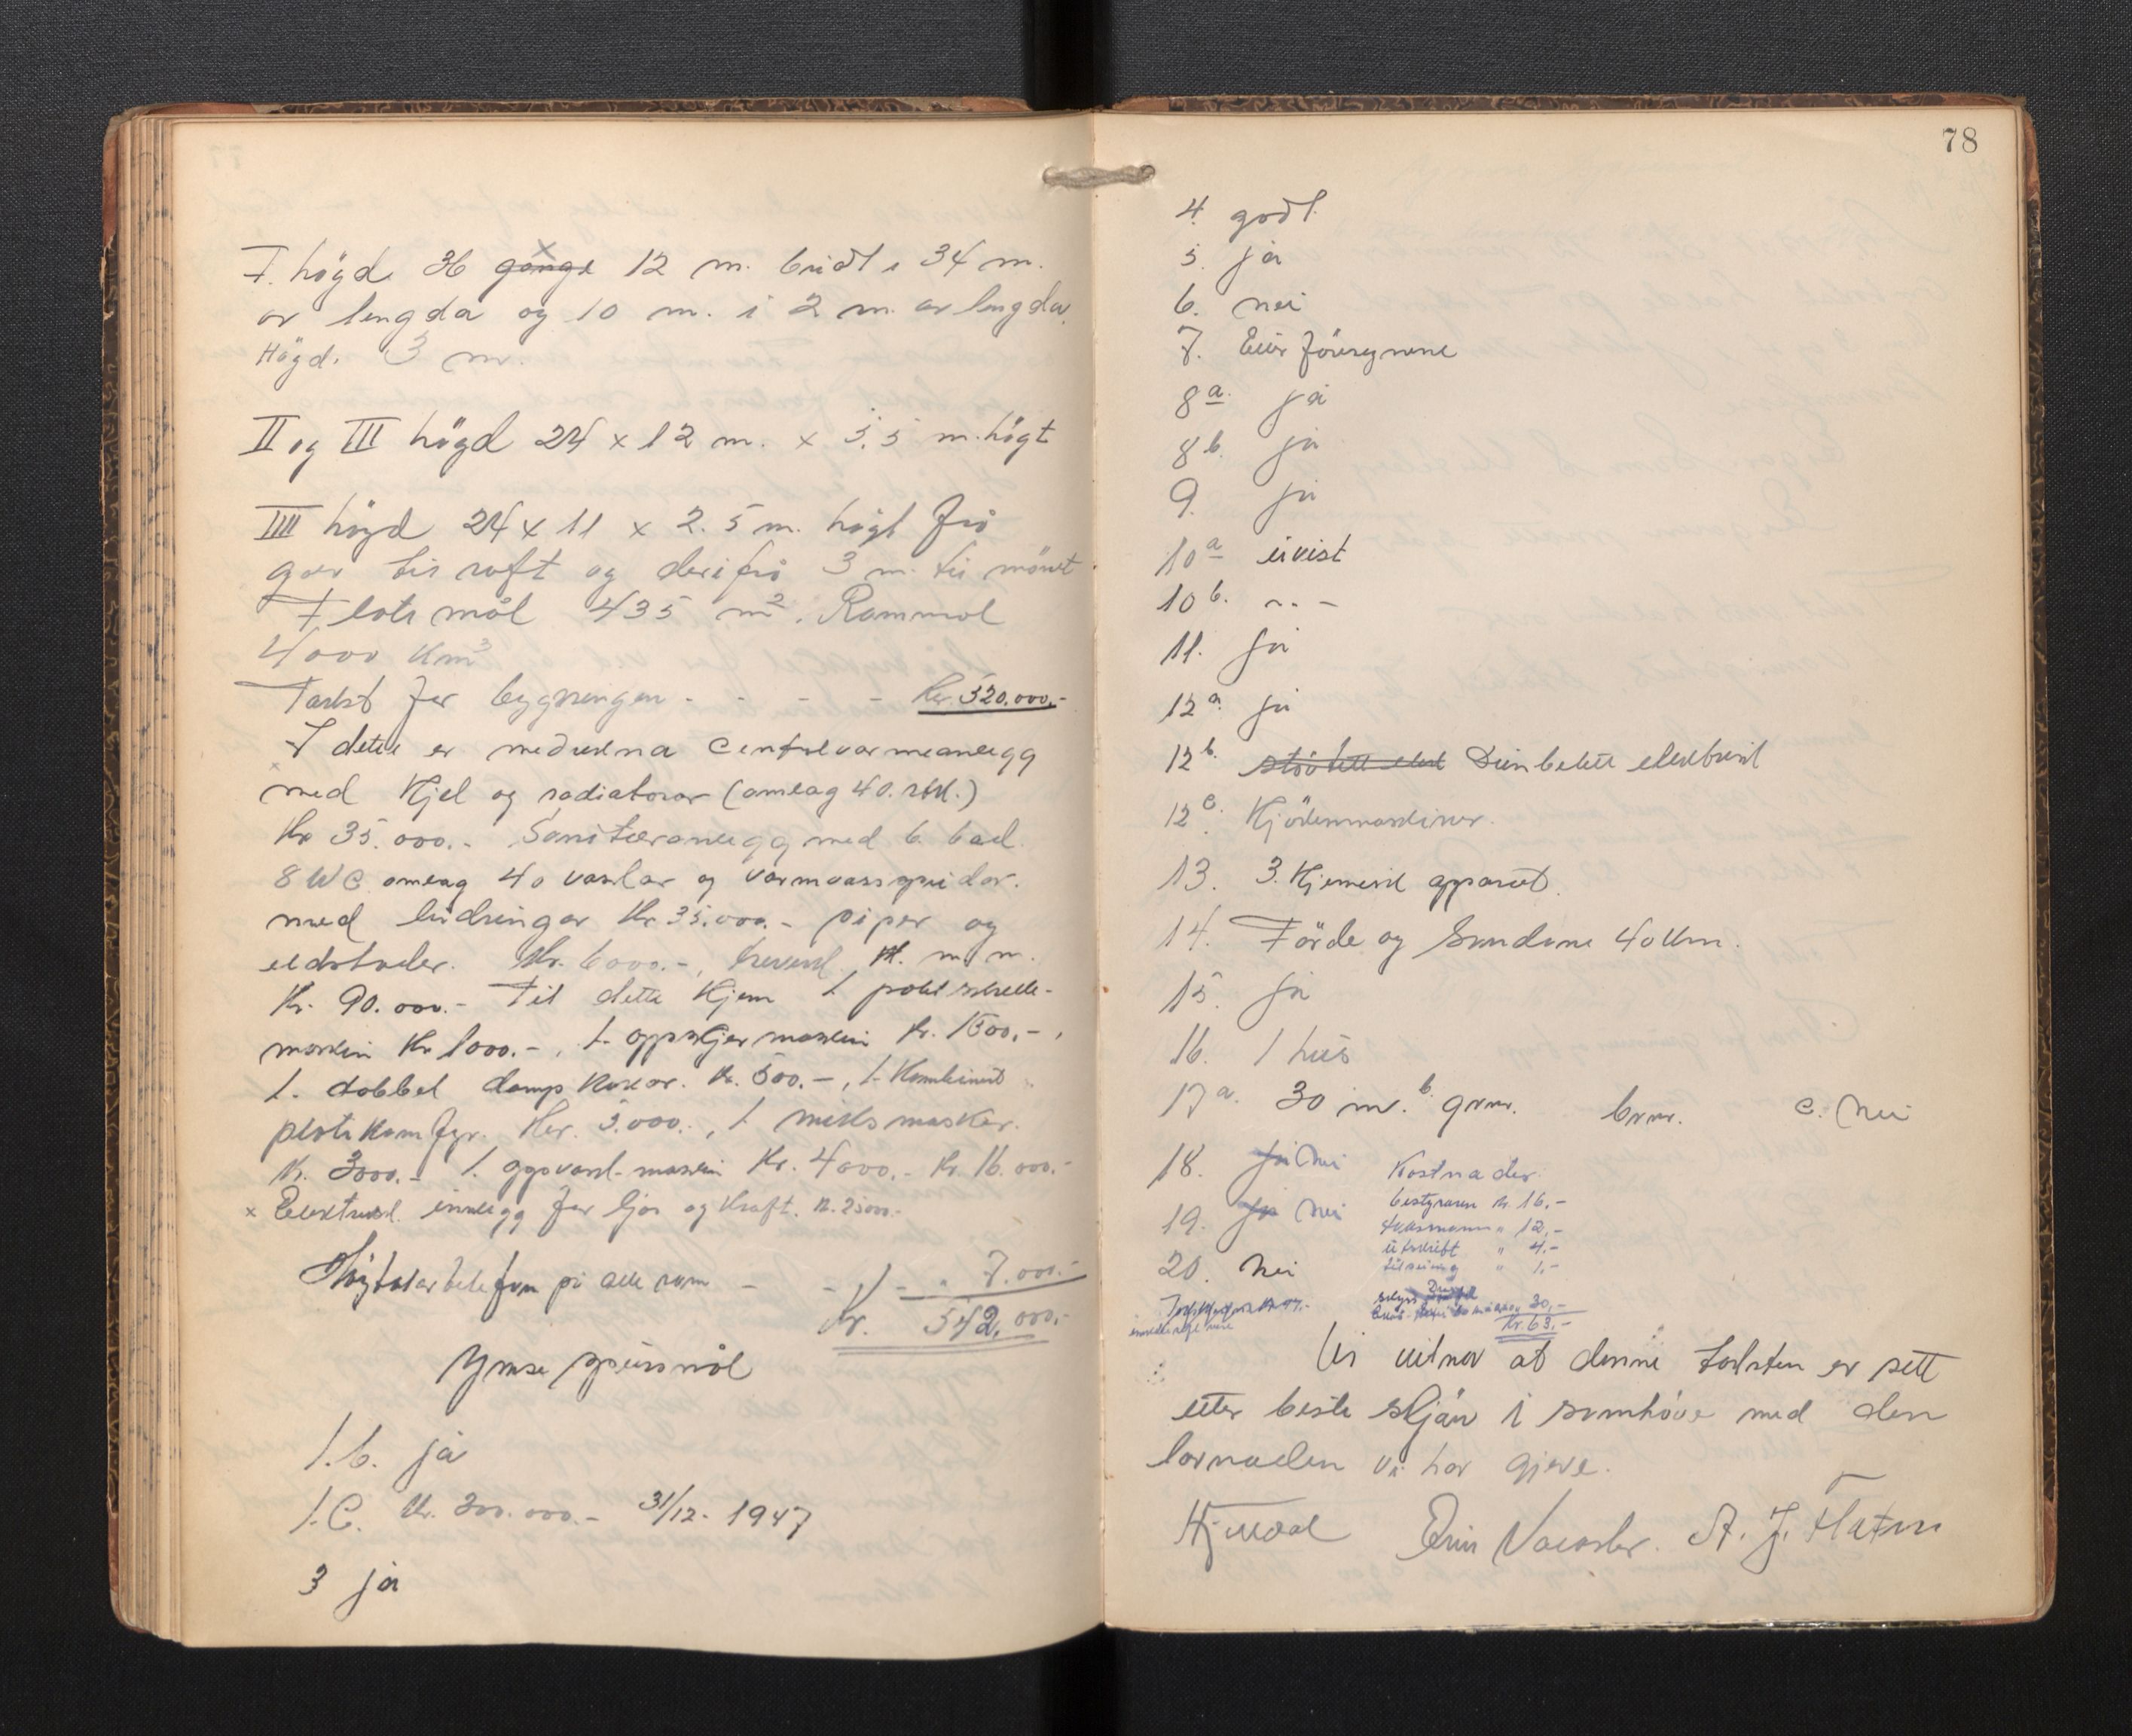 I. högd 36 gange x 12 m. breidt i 34 m.
av lengda og 10 m. i 2 m. av lengda.
Högd. 3 m.
II og III högd 24 x 12 m. x 5.5 m. högt
IIII högd 24 x 11 x 2.5 m. högt frå
golv til roft og derifrå 3 m. til mönet
Flatemål 435 m². Rommål
4000 km³
Takst for bygningen - - - - kr. 520.000,-
I dette er medrekna Centralvarmeanlegg
med Kjel og radiatorar (omlag 40. stk.)
Kr 35.000.- Sanitæranlegg med 6 bad.
8 WC omlag 40 vaskar og varmvass
med leidningar Kr 35.000.- piper og
eldstader. Kr. 6000.-, m. m.
Kr. 90.000.- Til dette Kjem 1 potetskrelle-
maskin Kr 1000.-, 1. oppskjer maskin Kr. 1500.-,
1. dobbel damp kokar. Kr. 500.-, 1. Kombinert
plate komfyr. Kr. 5.000.-, 1 miksmaskin.
Kr. 3000.- 1. oppvask-maskin Kr. 4000.- Kr. 16.000.-
x Elektrisk innlegg for ljos og Kraft. K. 25000.-
Högtalartelefon på alle rom - - " - " 7.000.-
Kr. 542.000.-
Ymse spursmål
1.b. ja
1.C. Kr. 300.000.- 31/12- 1947
3 ja
78
4. godt.
5. ja
6. nei
7. Eier
8 a. ja
8 b. ja
9. ja
10 a uvist
10 b. " -
11. ja
12 a. ja
12 b. elektrisk
12 c. Kjökenmaskiner.
13. 3. Kjemisk apparat.
14. Förde og Sandane 40 km.
15. ja
16. 1 hus
17 a. 30 m. b. grm. brm. c. Nei
18. ja Nei Kostnader.
bestyraren kr. 16,-
19. ja Nei
takstmann " 12,-
utskrift " 4,-
20. Nei
" 1,-
30,-
Kr. 63,-
Vi vitnar at denne taksten er sett
etter beste skjön i samhöve med den
lovnaden vi har gjeve.
A. J. Flaten